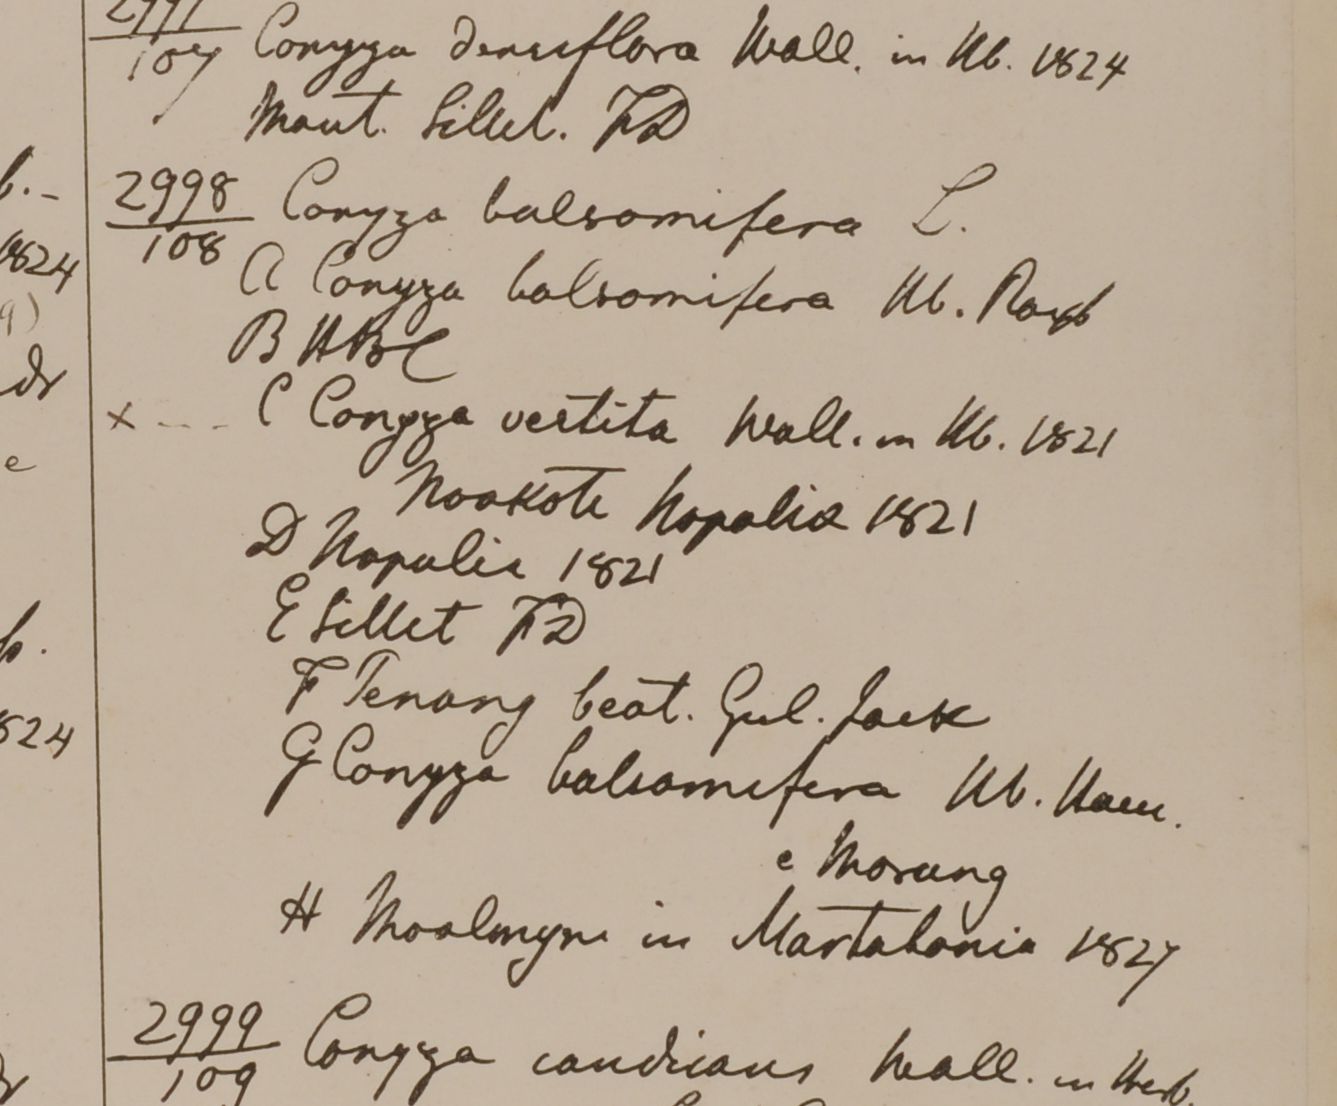 2997
107 Conyza densiflora Wall. in Hb. 1824
Mont. Sillet. FD
2998
108 Conyza balsamifera L.
A Conyza balsamifera Hb. Roxb
B HBC
x --- C Conyza vestita Wall. in Hb. 1821
Noakote Napalia 1821
D Napalia 1821
E Sillet FD
F Penang beat. Gul. Jack
G Conyza balsamifera Hb. Ham.
e Morung
H Moalmyne in Martabania 1827
2999
109 Conyza candicans Wall. in Herb.